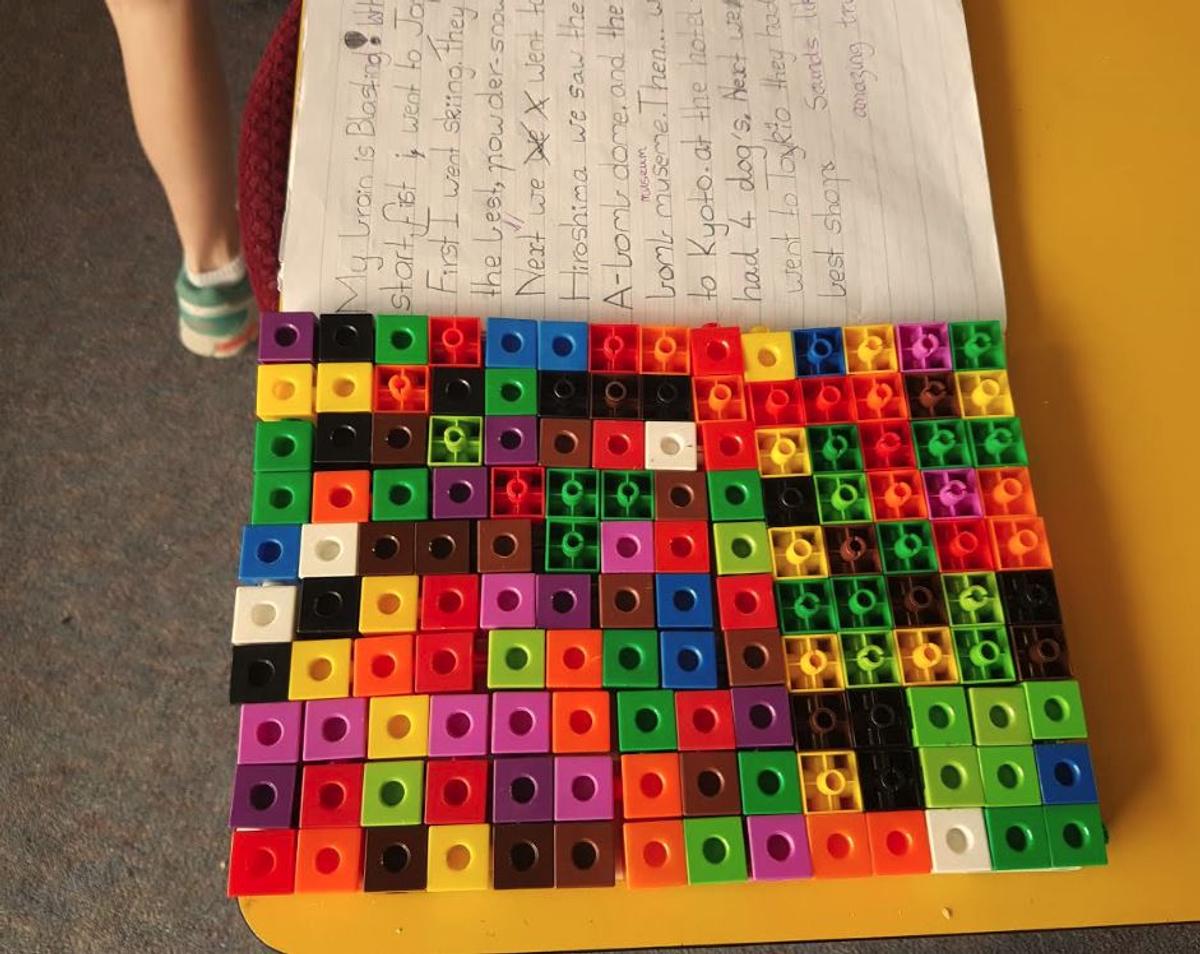 My brain is Blasting! Wh
start, fist i went to Jap
First I went skiing. They
the best, powder-snow
Next we went to
Hiroshima we saw the
A-bomb dome. and the
museum
bomb museme. Then... w
to Kyoto. at the hotel
had 4 dog's. Next we
went to Toykio they had
best shops
Sounds lik
amazing tri